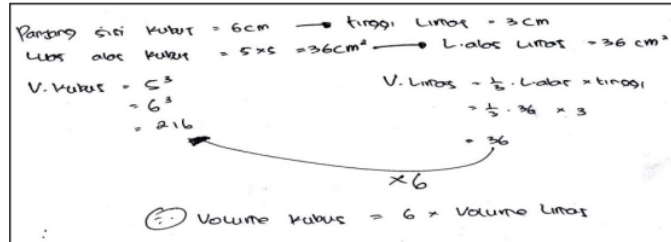 Panjang sisi kubus = 6cm → tinggi Limas = 3cm
Luas alas kubus = s×s = 36cm² → L.alas Limas = 36 cm²
V. kubus = s³
= 6³
= 216
V. Limas = 1/3 . L.alas × tinggi
= 1/3 . 36 × 3
= 36
×6
∴ Volume kubus = 6 × Volume Limas